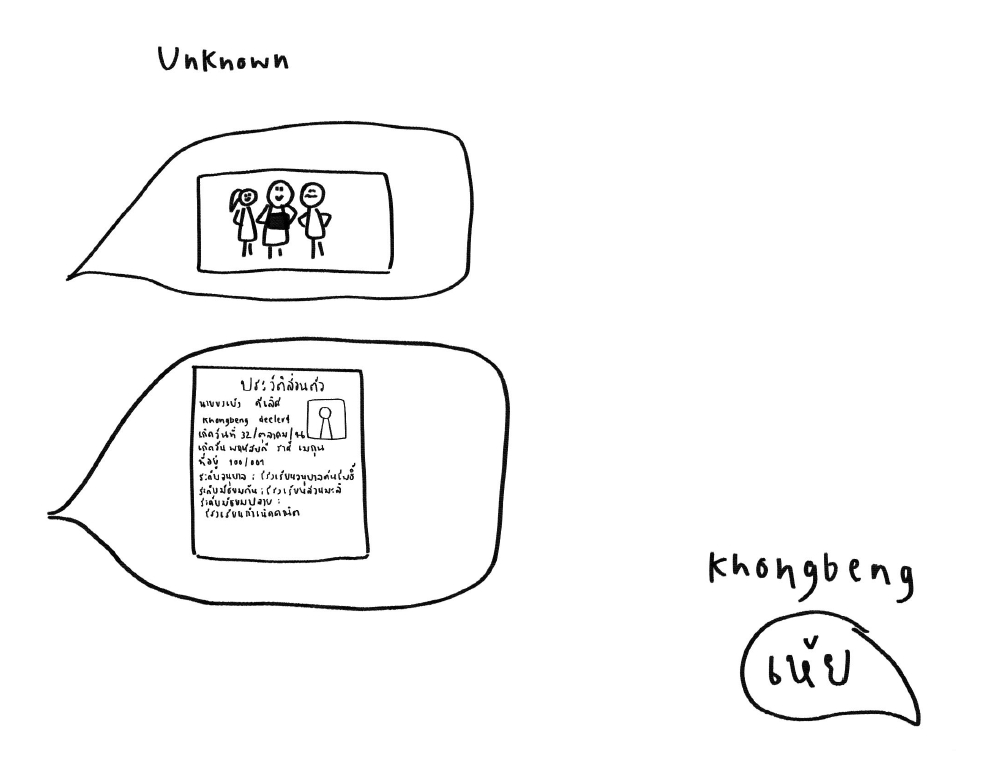 Unknown
ประวัติส่วนตัว
นายขงเบ้ง ดีเลิศ
Khongbeng declert
เกิดวันที่ 32/ตุลาคม/
เกิดวัน พฤหัสบดี ราศี เมถุน
ที่อยู่ 100/001
ระดับอนุบาล : โรงเรียนอนุบาลต้นโพธิ์
ระดับมัธยมต้น : โรงเรียนสวนมะลิ
ระดับมัธยมปลาย :
โรงเรียนกำเนิดคณิต
Khongbeng
เห้ย